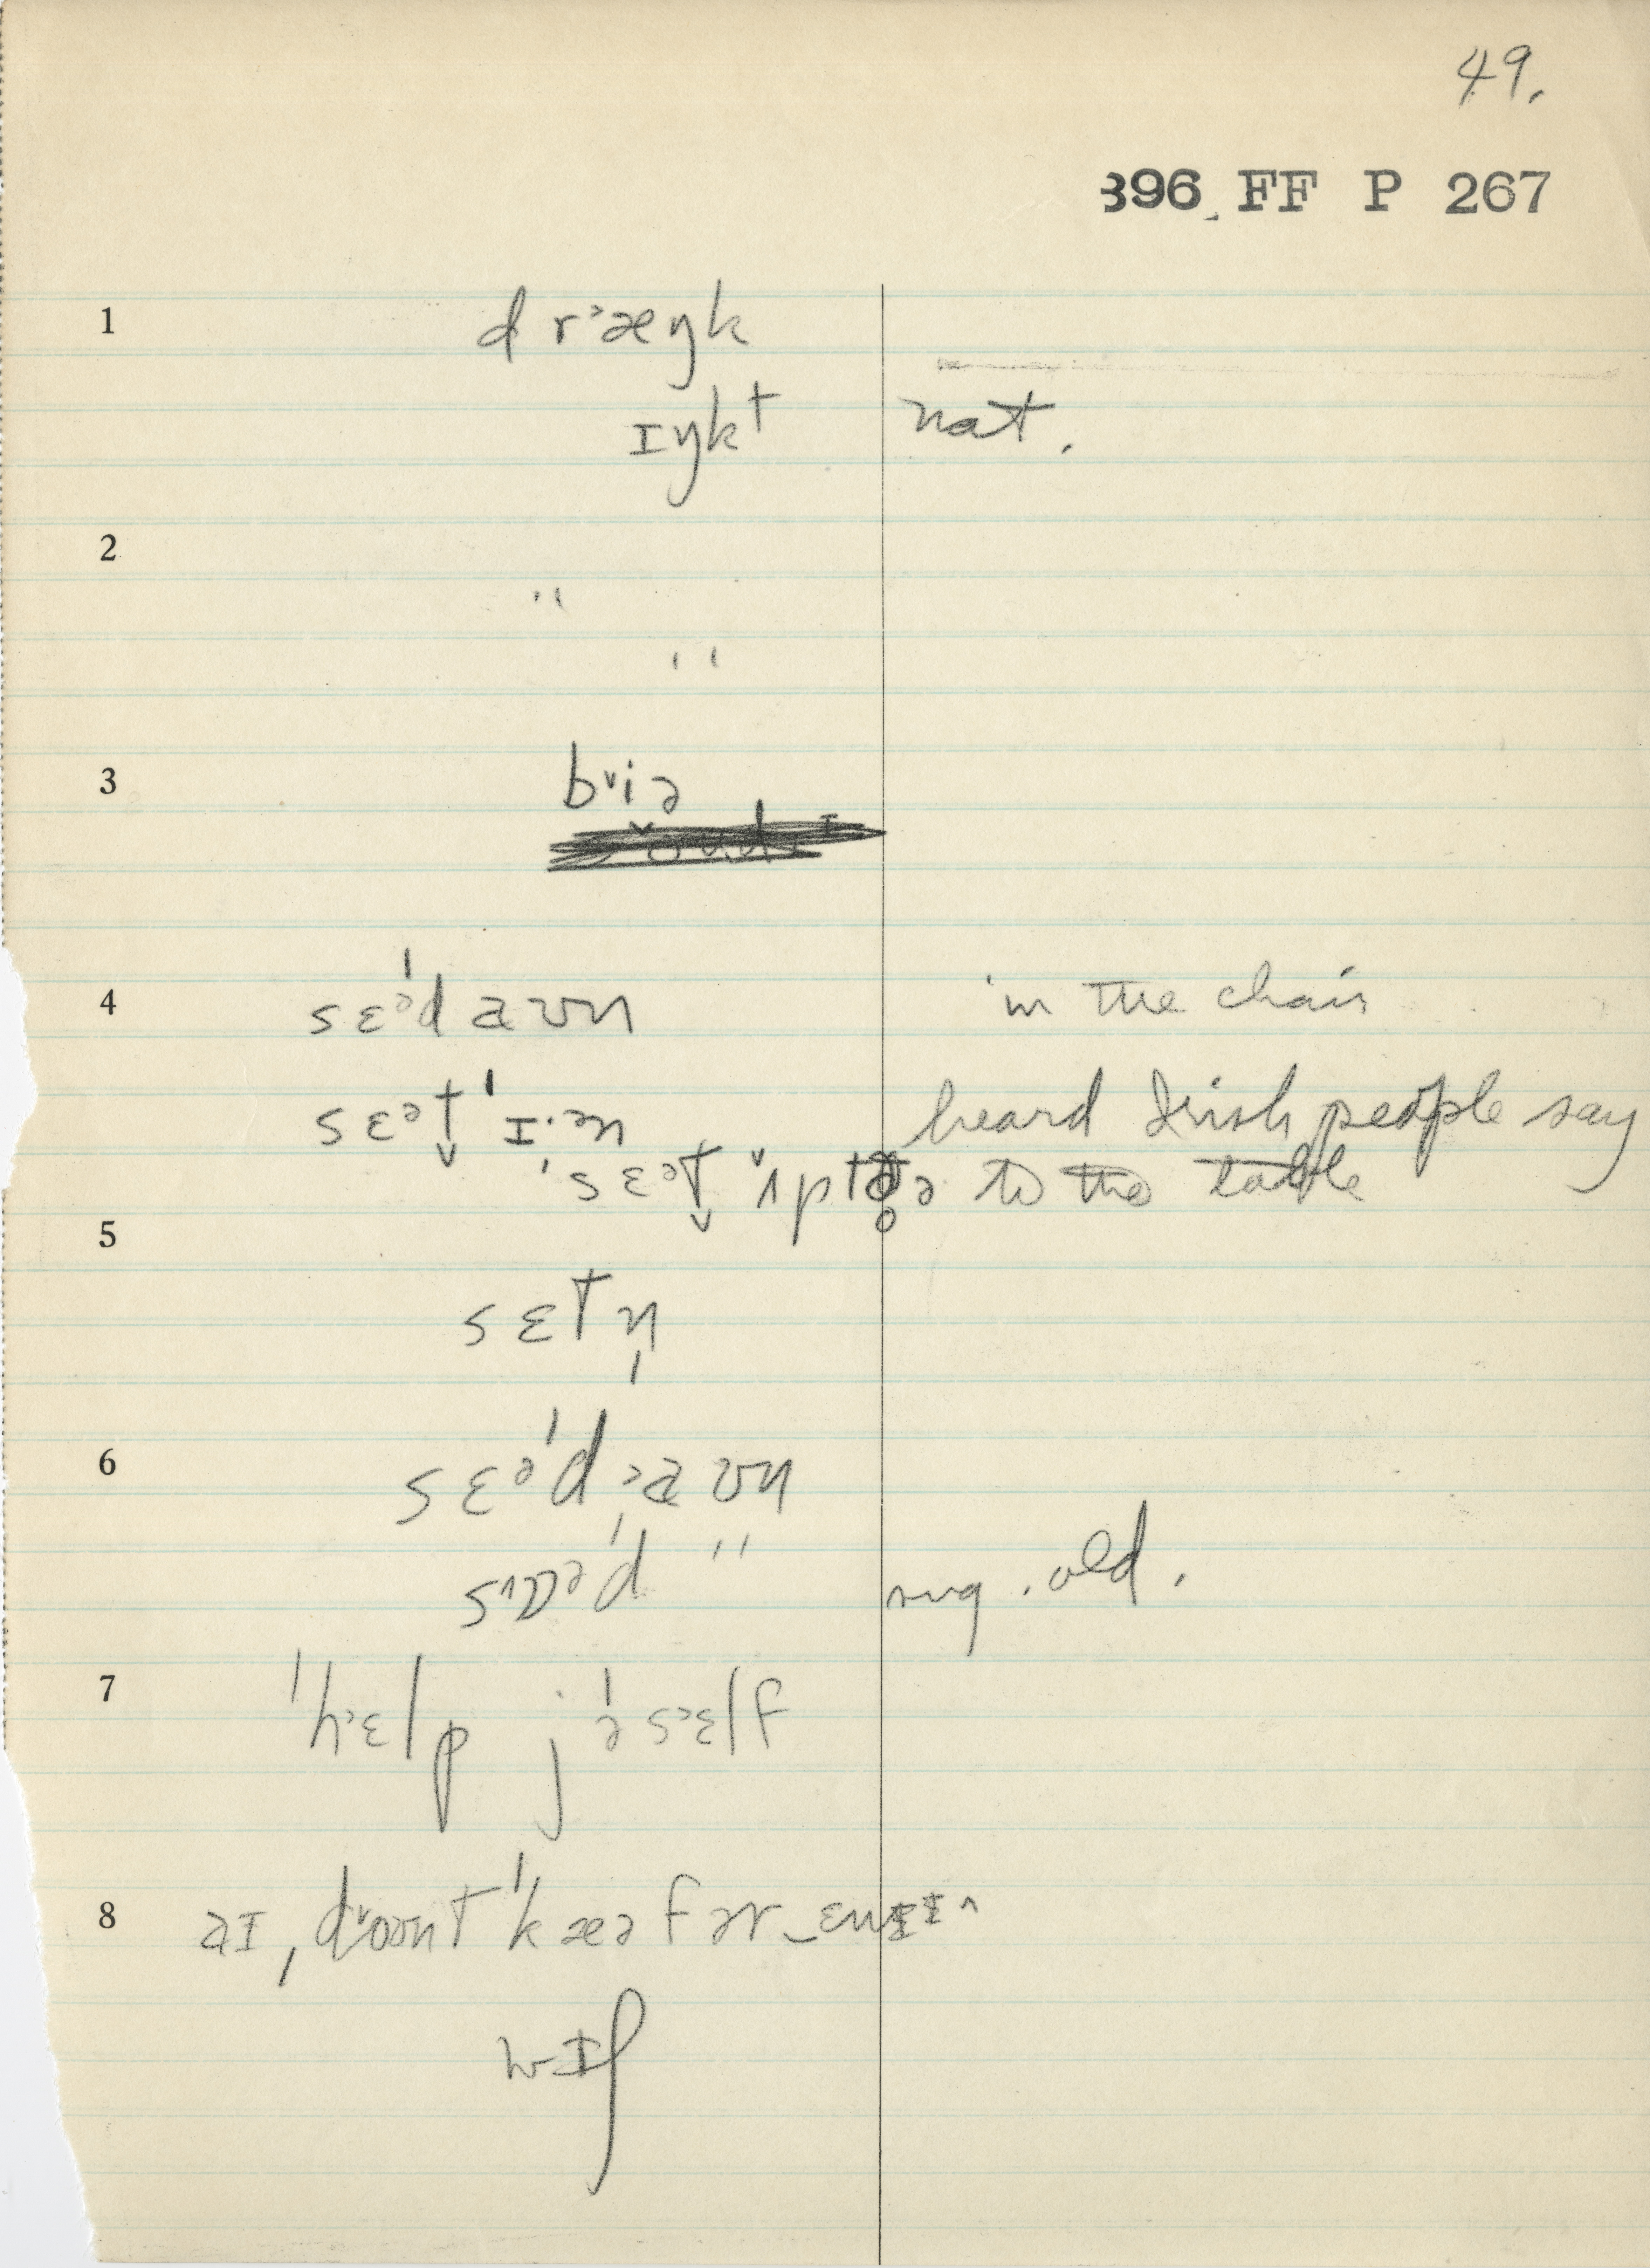 49.
396 FF P 267
1
dr˃æŋk
ɪŋkt nat.
2
" 
" 
3
b˅iə
4
sɛəˈd aʊn in the chair
sɛət̬ ˈɪ·ən heard Irish people say
ˈsɛət̬ ʌp to the table
5
sɛtn̩
6
sɛəˈd ˃aʊn
" sug. old.
7
ˈh˃ɛlp jəˈs˃ɛlf
8
aɪ ˌd˅oʊnt ˈkæə fər‿ɛn
wɪʃ